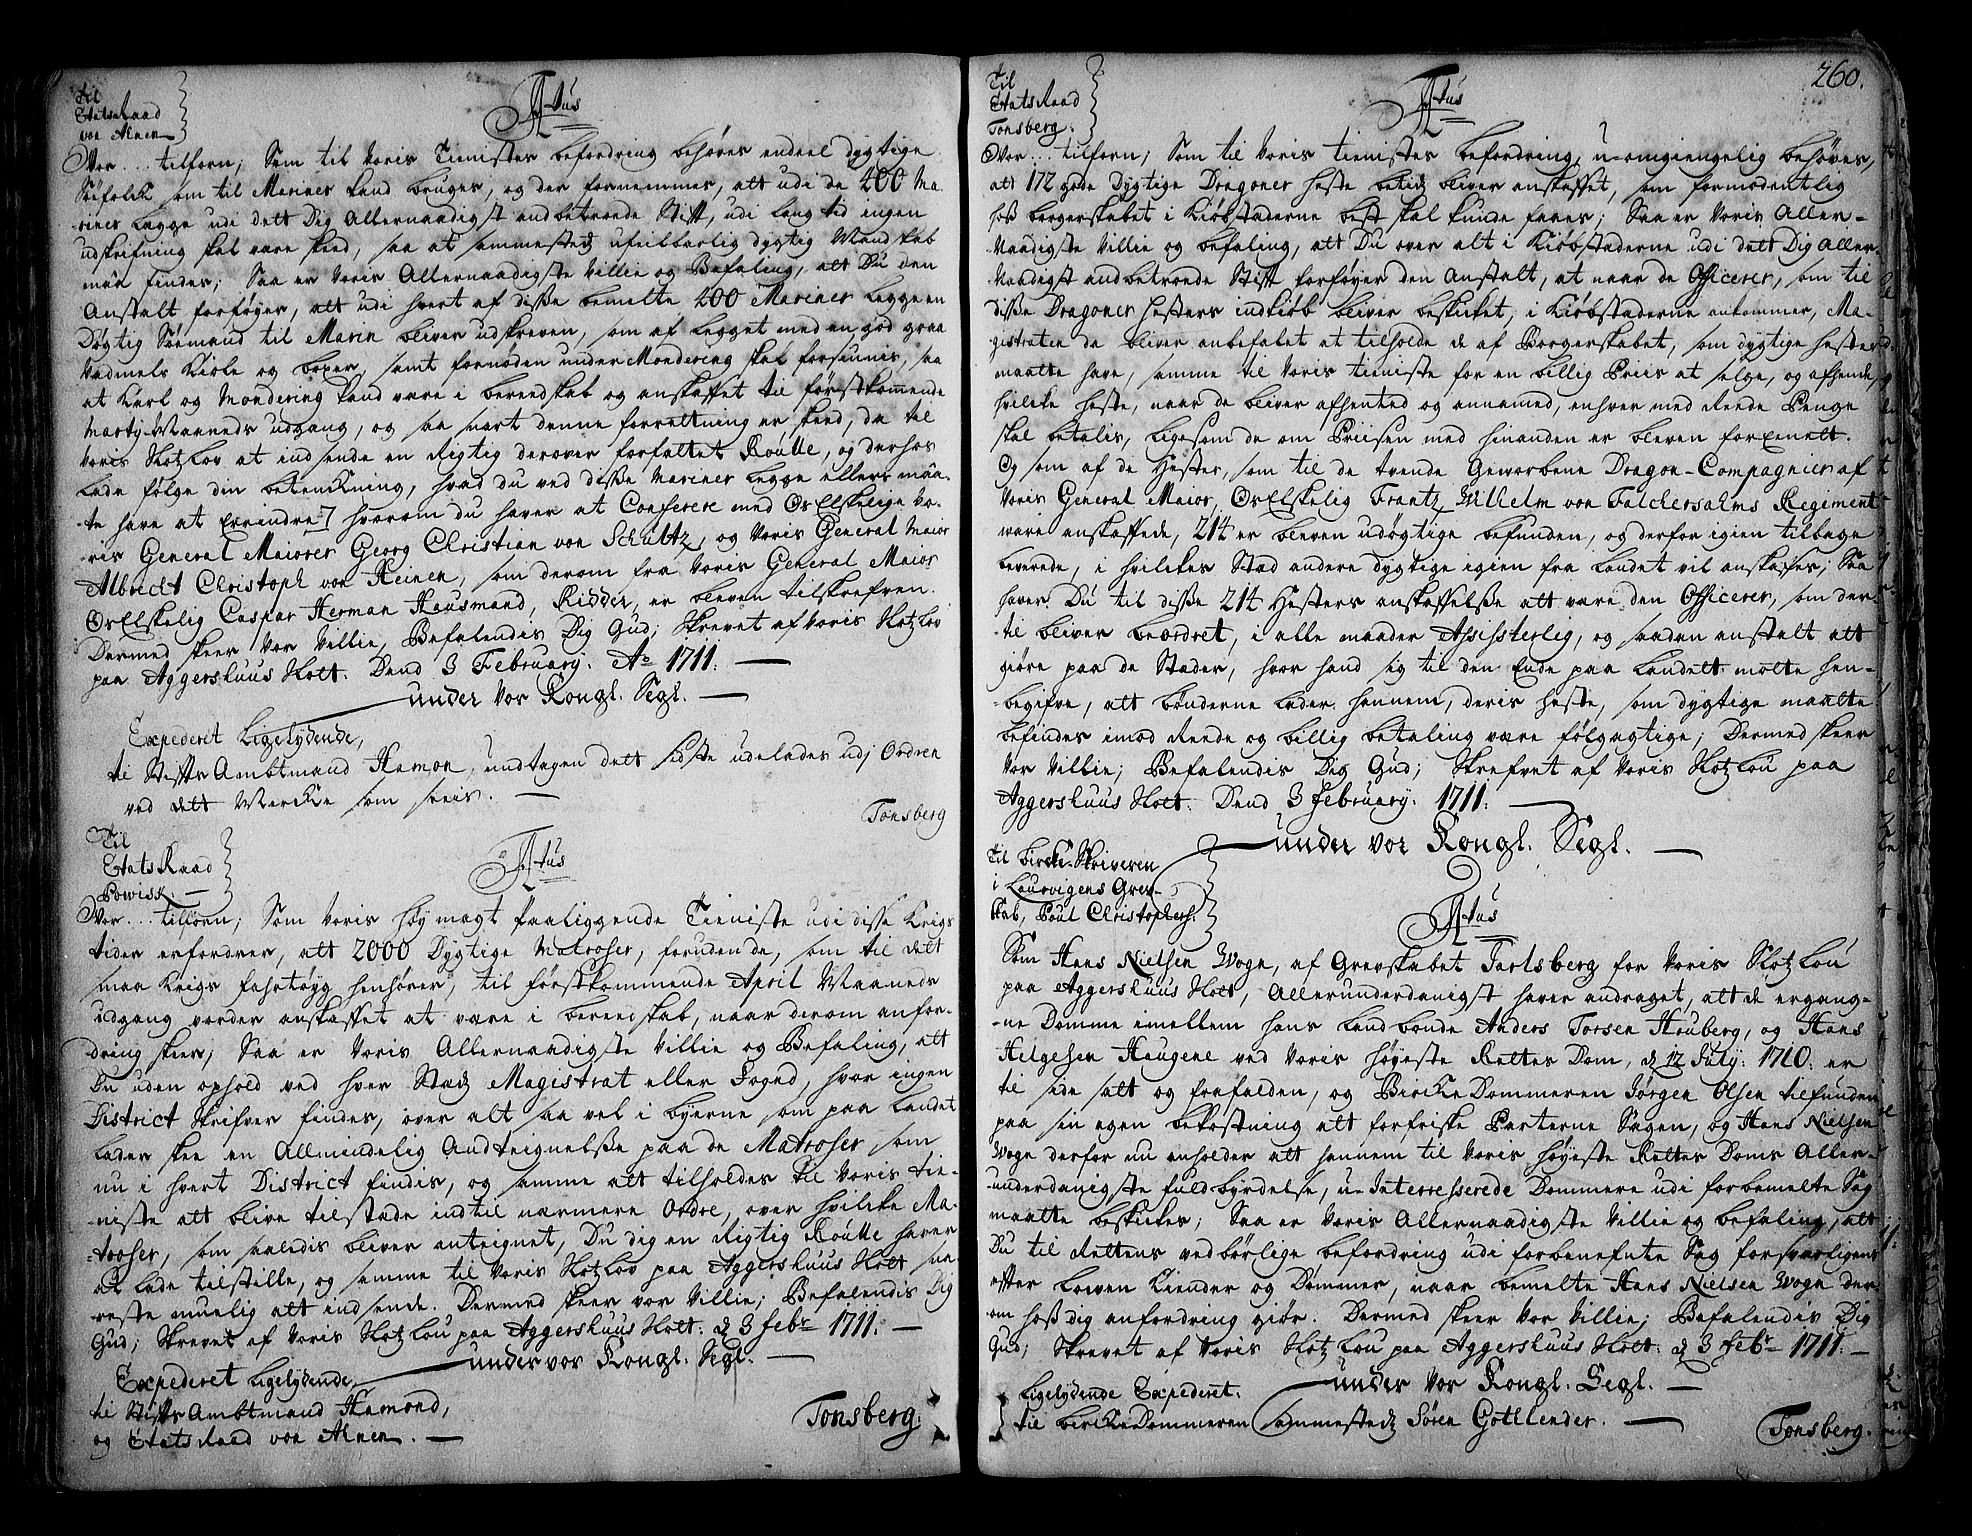 Til
Etats Raad
von Ahnen
Atus
Vor... tilforn; Som til Voris Tienistes befordring behøves endeel dygtige
Søefolck som til Mariner kand bruges, og der fornemmes, att udi de 200 Ma-
-riner Legge udi dett Dig Allernaadigst andbetroede Stift, udi lang tid ingen
udskrifning skal være skeed, saa at sammestedz ufeilbarlig dygtig Mandskab
maa findes; Saa er Voris Allernaadigste Villie og Befaling, att Du den
Anstalt forføyer, att udi hvert af disse bemelte 200 Mariner Legge en
Døgtig Søemand til Marin bliver udskreven, som af Legget med en god graa
Vadmels Kiole og boxer, samt fornøden under Mondering skal forsiunis, saa
at Karl og Mondering kand være i bereedskab og anskaffet til førstkom̄ende
Marty Maaneds udgang, og saa snart denne forretning er skeed, da til
Voris Slotzlov at indsende en Rigtig derover forfattet Roulle, og derhos
lade følge din betenckning, hvad du ved disse Mariner Legge ellers maa-
-te have at Erindre⁊ hvorom du haver at Conferere med OsElskelige Vo-
-ris General Maiorer Georg Christian von Schultz, og Voris General Maior
Albrecht Christoph von Heinen, som derom fra Voris General Maior
OsElskelig Caspar Herman Hausmand, Ridder, er bleven tilskrefven.
Dermed skeer Vor Villie, Befalendis Dig Gud; Skrevet af Voris Slotzlov
paa Aggershuus Slott. Dend 3 February. Ao 1711.
under Vor Kongl. Segl.
Expederet Ligelydende,
til Stifts Ambtmand Hamon, undtagen dett sidste udelades udj Ordren
ved dett Mercke som sees.
Tonsberg
Til
Etats Raad
Powisk.
Atus
Vor... tilforn; Som Voris høy magt Paaliggende Tieniste udi disse Krigs
tider erfordrer, att 2000 Dygtige Matroser, foruden de, som til dett
smaa Krigs fahrtøyg henhører, til førstkommende April Maaneds
udgang vorder anskaffet at være i bereedskab, naar derom anfor-
dring skeer; Saa er Voris Allernaadigste Villie og Befaling, att
Du uden ophold ved hver Stædz Magistrat eller Fogud, hvor ingen
District Skrifver findes, over alt saa vel i byerne som paa Landet
lader skee en Allmindelig Andteignelsse paa de Matroser som
nu i hvert District findis, og samme att tilholdes til Voris tie-
-niste att blive tilstæde indtil nærmere Ordre, over hvilcke Ma-
-troser, som saaledis bliver anteignet, Du dig en Rigtig Roulle haver
at lade tilstille, og samme til Voris Slotzlov paa Aggershuus Slott saa
reste muelig att indsende. Dermed skeer vor Villie; Befalendis Dig
Gud; Skrevet af Voris Slotzlou paa Aggershuus Slott. d 3 febr 1711.
under vor Kongl. Segl.
Expederet Ligelydende,
til Stifts Ambtmand Hamond,
og Etats Raad von Ahnen.
Tonsberg.
260.
Til
Etats Raad
Tonsberg.
Atus
Vor... tilforn; Som til Voris tienistes befordring u-omgiengelig behøves,
att 172 gode Dygtige Dragoner Heste betidz bliver anskaffet, som formodentlig
hoss borgerskabet i Kiøbstæderne best skal kunde faaes; Saa er Voris Aller-
Naadigste Villie og befaling, att Du over alt i Kiøbstæderne udi dett Dig Aller-
Naadigst andbetroede Stift forføyer den Anstalt, at naar de Officerer, som til
disse Dragoner Hesters indkiøb bliver beskicket, i Kiøbstæderne ankommer, Ma-
gistraten da bliver anbefalet at tilholde d af Borgerskabet, som dygtige Hester
maatte have, samme til Voris tieniste for en billig Priis at sælge, og afhende,
hvilcke Heste, naar de bliver afhented og annamed, enhver med Reede Penge
skal betalis, Ligesom de om Priisen med hinanden er bleven foreenelt.
Og som af de Hester, som til de tvende Geworbene Dragon-Compagnier af
Voris General Maior, OsElskelig Frantz Wilhelm von Falchersalms Regiment
vare anskaffede, 214 er bleven udøgtige befunden, og derfor igien tilbage
leverede, i hvilckes Stæd andere dygtige igien fra Landet vil anskaffes; Saa
haver Du til disse 214 Hesters anskaffelsse att være den Officerer, som der-
-til bliver beordret, i alle maader Assisterlig, og saadan anstalt att
giøre paa de Stæder, hvor hand sig til den Ende paa Landett motte hen-
-begifve, att bønderne lader hannem, deris heste, som dygtige maatte
befindes imod Reede og billig betaling være følgagtige; Dermed skeer
Vor Villie; Befalendis Dig Gud; Skrefvet af Voris Slotzlou paa
Aggershuus Slott. Dend 3 February. 1711.
under vor Kongl. Segl.
Til Bircke-Skriveren
i Laurvigens Grev-
skab, Poul Christophers.
Atus
Som Hans Nielsen Wogn, af Grevskabet Jarlsberg for Voris Slotzlou
paa Aggershuus Slott, Allerunderdanigst haver andraget, att de ergang-
-ne Domme imellem hans Landbonde Anders Torsen Houberg, og Hans
Helgesen Haugene ved Voris høyeste Rettes Dom, d 12 July: 1710. er
til side satt og frafalden, og Bircke Dommeren Jørgen Olsen tilfunden
paa sin egen bekostning att forfriske Parterne Sagen, og Hans Nielsen
Wogn derfor nu anholder att hannem til Voris høyeste Rettes Doms Aller-
-underdanigste fuldbyrdelse, u-Interresserede Dommere udi forbemelte Sag
maatte beskickes; Saa er Voris Allernaadigste Villie og befaling, att
Du til Rettens vedbørlige befordring udi forbenefnte Sag forsvarligens
efter Lowen Kiender og Dømmer, naar bemelte Hans Nielsen Wogn der
om hoss dig anfordring giør. Dermed skeer Vor Villie; Befalendis Dig
Gud; Skrevet af Voris Slotzlou paa Aggershuus Slott. d 3 febr 1711.
under Vor Kongl. Segl.
Ligelydende Expederet.
til bircke Dommeren sammestedz Søren Gottlender.
Tonsberg.